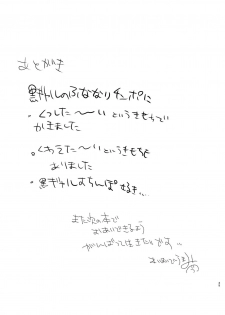 あとがき
黒ギャルのふたなりチンポに
・くっした〜〜い というきもちで
かきました
・くわえた〜〜い というきもちも
ありました
・黒ギャル
また次の本で
おあいできるよう
がんばって生きたいです